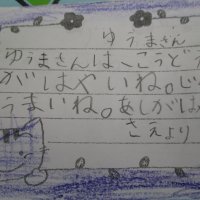 ゆうまさん
ゆうまさんは、こうどう
がはやいね。じ
うまいね。あしがは
さえより